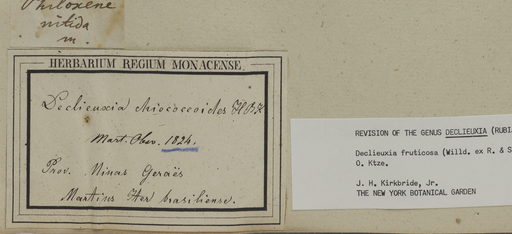 Philoxene
nitida
m.
HERBARIUM REGIUM MONACENSE.
Declieuxia chiococcoides H.B.K
Mart. Obsv. 1824.
Prov. Minas Geraës
Martius Iter brasiliense.
REVISION OF THE GENUS DECLIEUXIA (RUBI
Declieuxia fruticosa (Willd. ex R. & S
O. Ktze.
J. H. Kirkbride, Jr.
THE NEW YORK BOTANICAL GARDEN